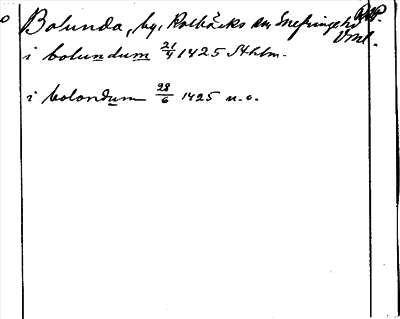 Bolunda, by, Kolbäcks sn Snefringe hd Vml.
i bolundum 21/4 1425 Sthlm.
i bolondum 28/6 1425 u.o.